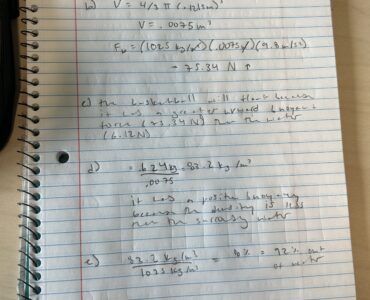 b) V = 4/3 π (.1213m)³
V = .0075m³
F_b = (1025 kg/m³)(.0075m³)(9.8m/s²)
= 75.34 N ↑
c) the basketball will float because
it has a greater upward buoyant
force (75.34N) than the water
(6.12N)
d)
.624kg = 83.2 kg/m³
.0075
it has a positive buoyancy
because the density is less
than the water
e) 83.2 kg/m³ = % = 92% out
1025 kg/m³ of water